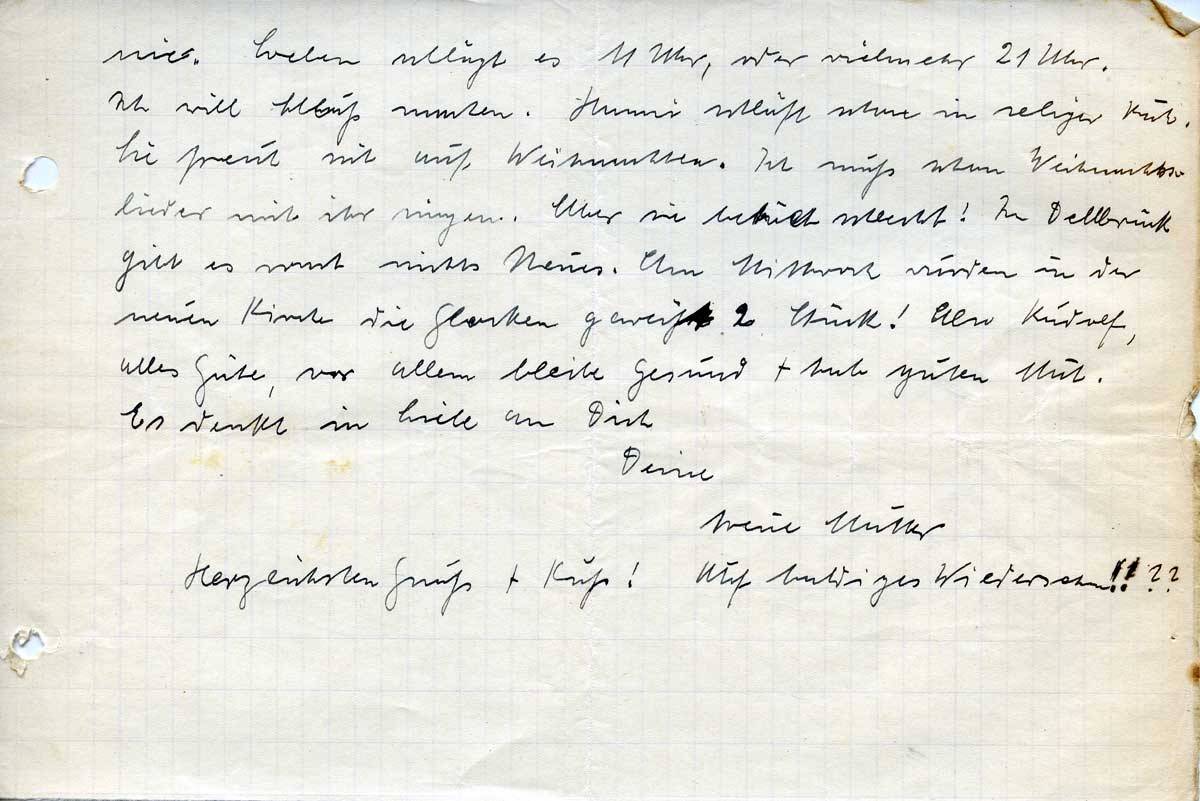 nie. Soeben schlägt es 11 Uhr, oder vielmehr 21 Uhr.
Ich will Schluß machen. Hanni schläft schon in seliger Ruh.
Sie freut sich auf Weihnachten. Ich muß schon Weihnachts-
lieder mit ihr singen. Aber sie schlecht! In Dellbrück
gibt es sonst nichts Neues. Am Mittwoch wurden in der
neuen Kirche die Glocken geweiht 2 Stück! Also Rudolf,
alles Gute, vor allem bleibe gesund + hab guten Mut.
Es denkt in Liebe an Dich
Deine
treue Mutter
Herzlichsten Gruß + Kuß! Auf baldiges Wiedersehen!! ??